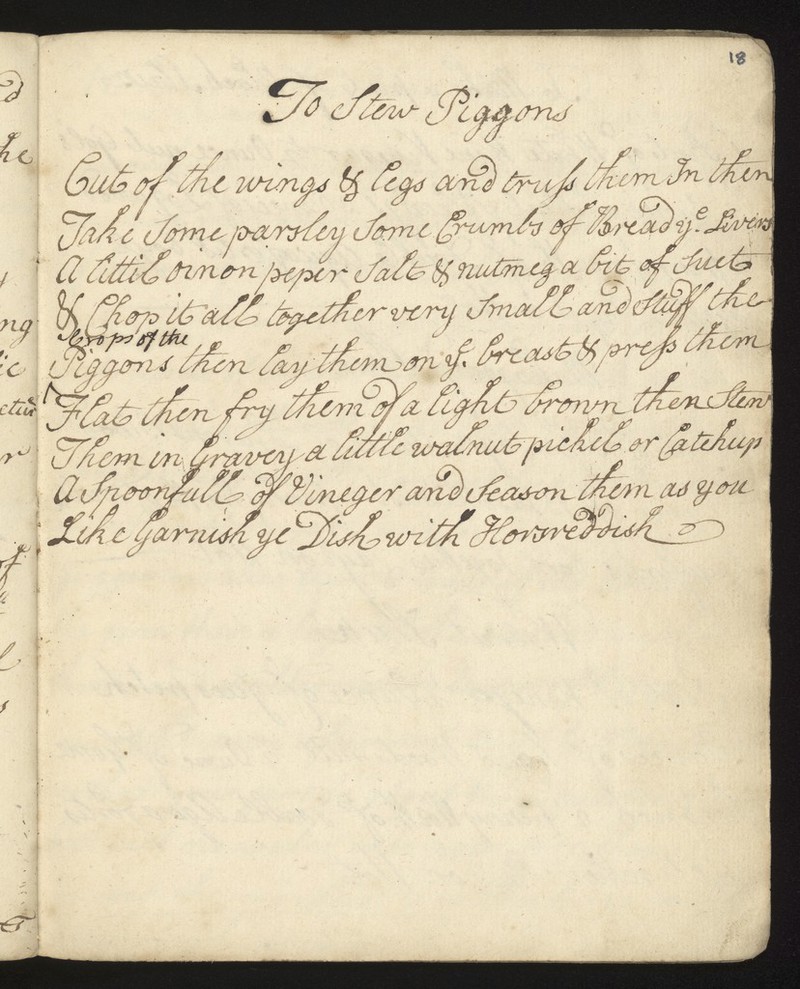 18
To Stew Piggons
Cut of the wings & legs and truss them In then
Take Some parsley Some Crumbs of Bread ye. Livers
A littil oinon peper Salt & nutmeg a bit of Suet
& Chop it all together very Small and Stuff the
Crops of the
Piggons then lay them on ye. breast & press them
Flat then fry them of a light brown then Stew
Them in Gravey a little walnut pickel or Catchup
A Spoonfull of Vineger and Season them as you
Like Garnish ye Dish with Horsreddish